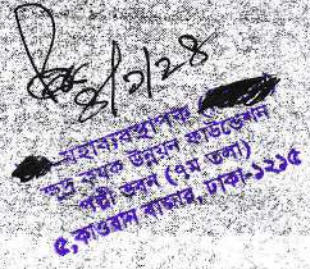 ৪/১/২৪
মহাব্যবস্থাপক (
ক্ষুদ্র কৃষক উন্নয়ন ফাউন্ডেশন
পল্লী ভবন (৭ম তলা)
৫,কাওরান বাজার, ঢাকা-১২১৫